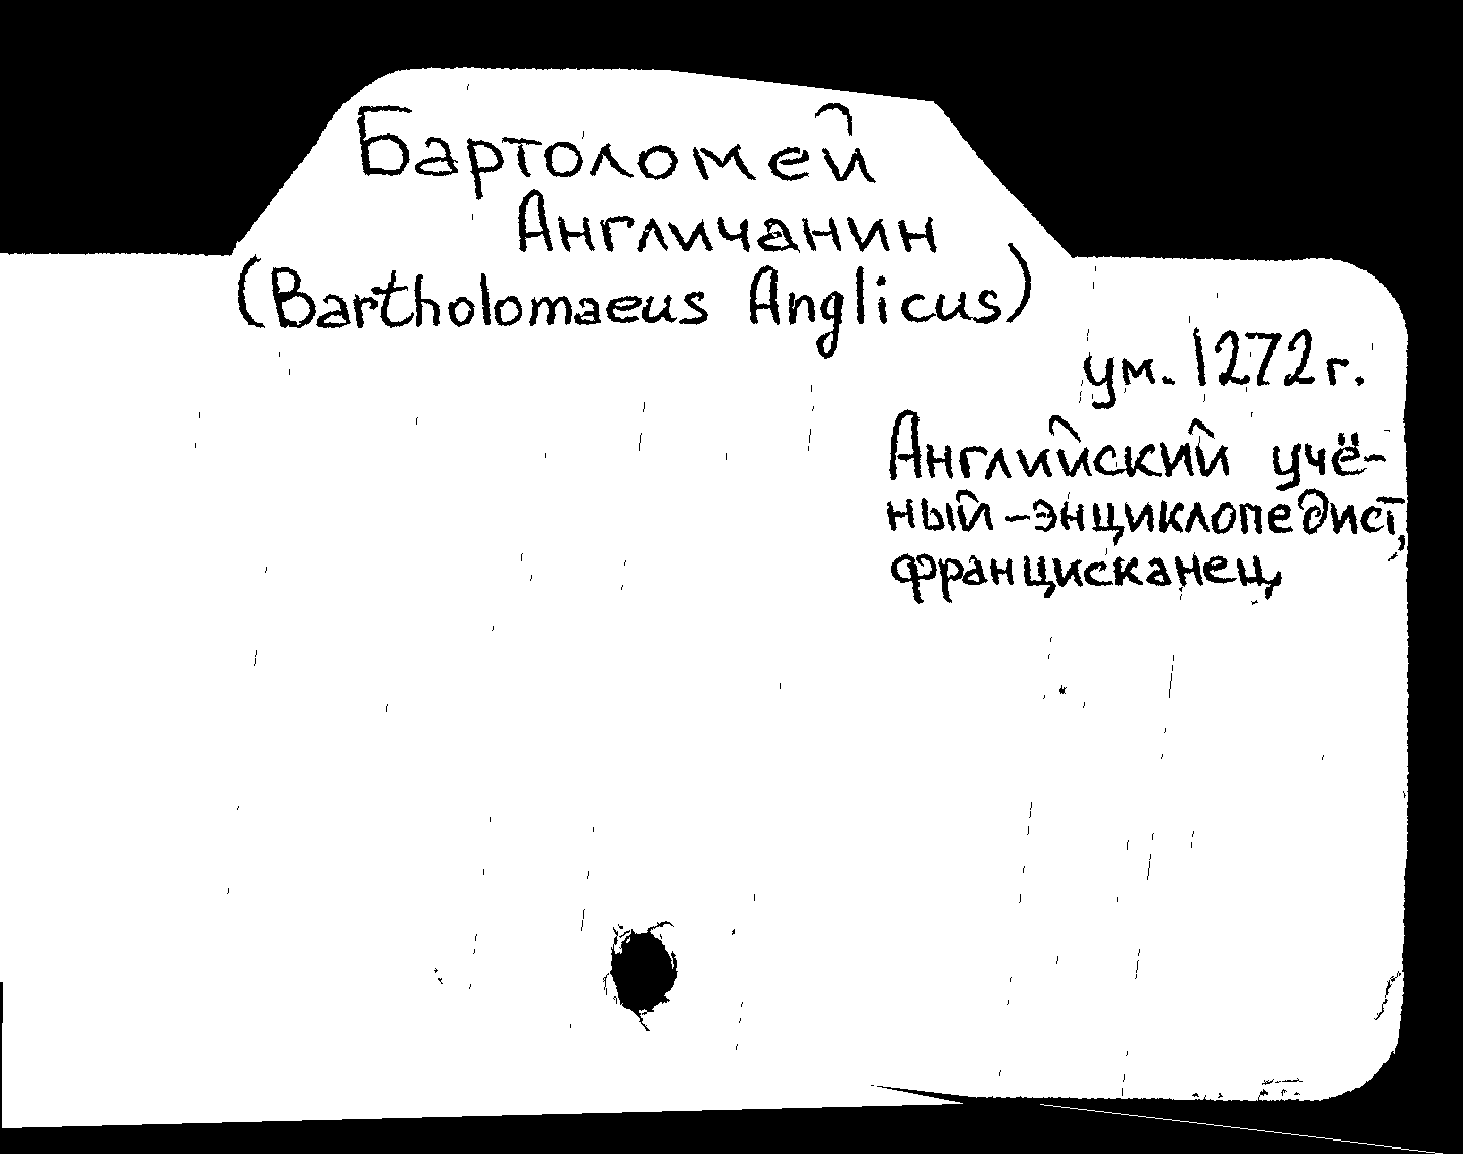 Бартоломей
Англичанин
(Bartholomaeus Anglicus)
ум. 1272 г.
Английский учё-
ный-энциклопедист,
францисканец